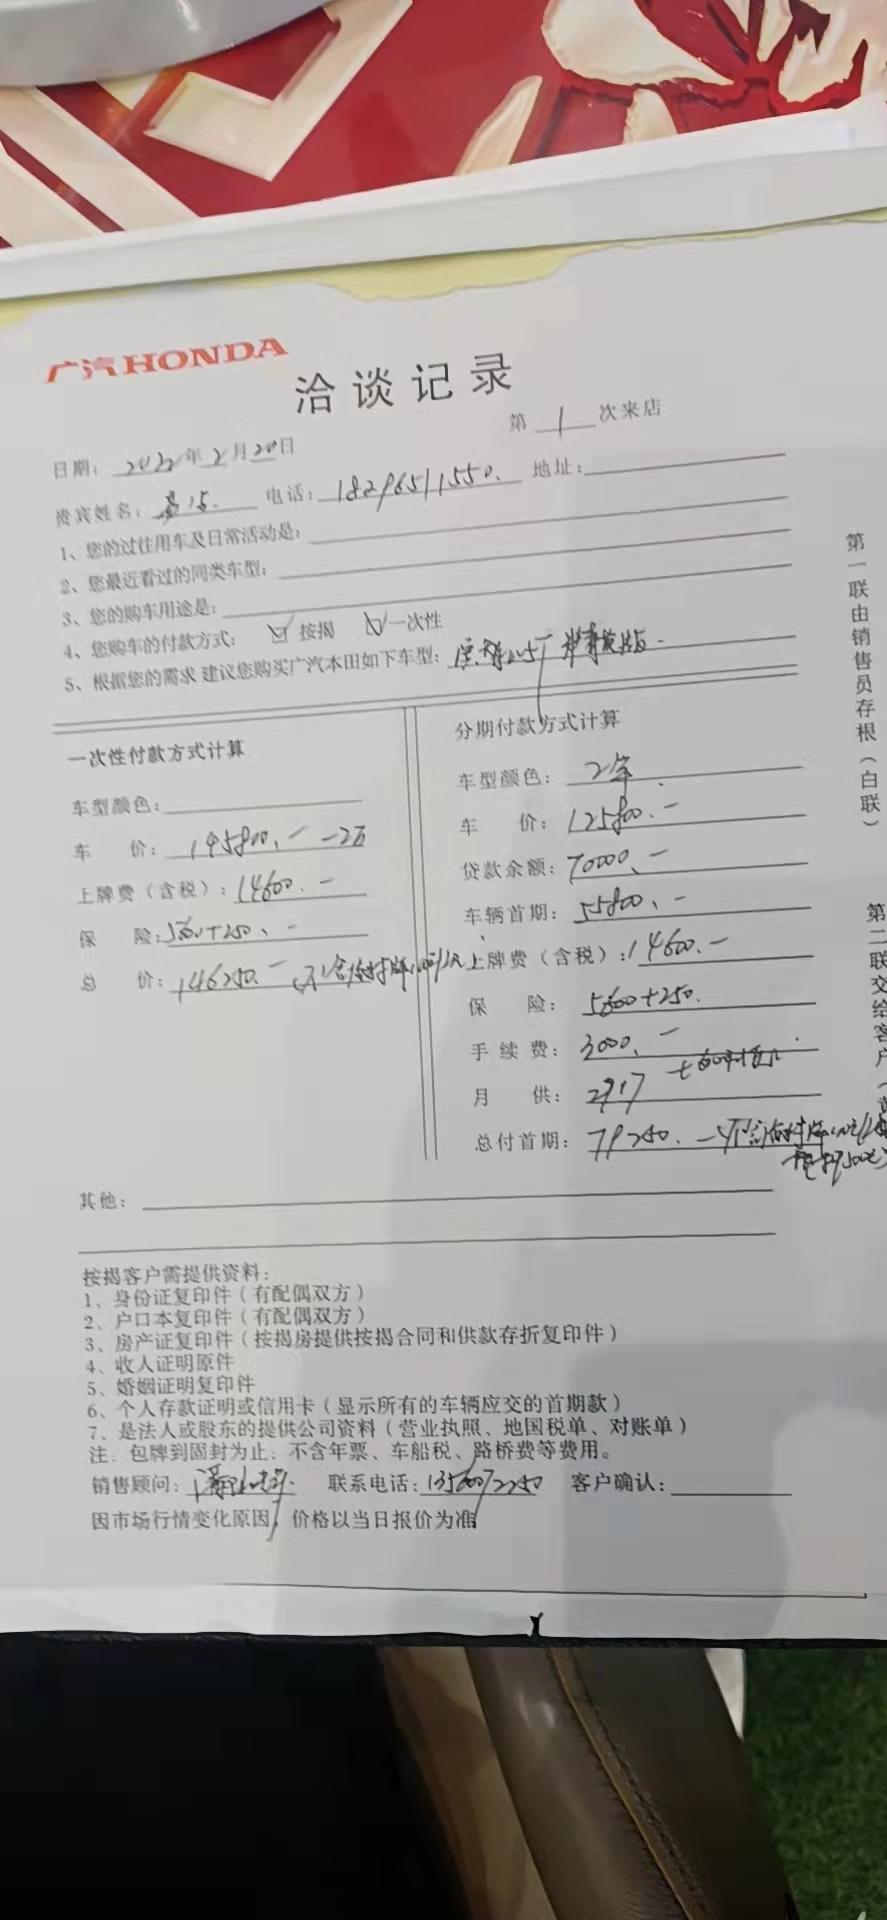 广汽HONDA
洽谈记录
第 1 次来店
日期: 2022年2月20日
贵宾姓名: 电话: 18296511550. 地址:
1、您的过往用车及日常活动是:
2、您最近看过的同类车型:
3、您的购车用途是:
4、您购车的付款方式: ☑ 按揭 ☑ 一次性
5、根据您的需求 建议您购买广汽本田如下车型:
一次性付款方式计算
车型颜色:
车 价: 145800.- -2万
上牌费(含税): 14600.-
保 险: +250.-
总 价: 146250.-
分期付款方式计算
车型颜色:
车 价: 125800.-
贷款余额: 70000.-
车辆首期: 55800.-
上牌费(含税): 14600.-
保 险: 5800+250.
手 续 费: 3000.-
月 供: 2917
总付首期: 79250.
其他:
按揭客户需提供资料:
1、身份证复印件(有配偶双方)
2、户口本复印件(有配偶双方)
3、房产证复印件(按揭房提供按揭合同和供款存折复印件)
4、收人证明原件
5、婚姻证明复印件
6、个人存款证明或信用卡(显示所有的车辆应交的首期款)
7、是法人或股东的提供公司资料(营业执照、地国税单、对账单)
注: 包牌到固封为止: 不含年票、车船税、路桥费等费用。
销售顾问: 联系电话: 客户确认:
因市场行情变化原因, 价格以当日报价为准
第一联由销售员存根(白联)
第二联交给客户